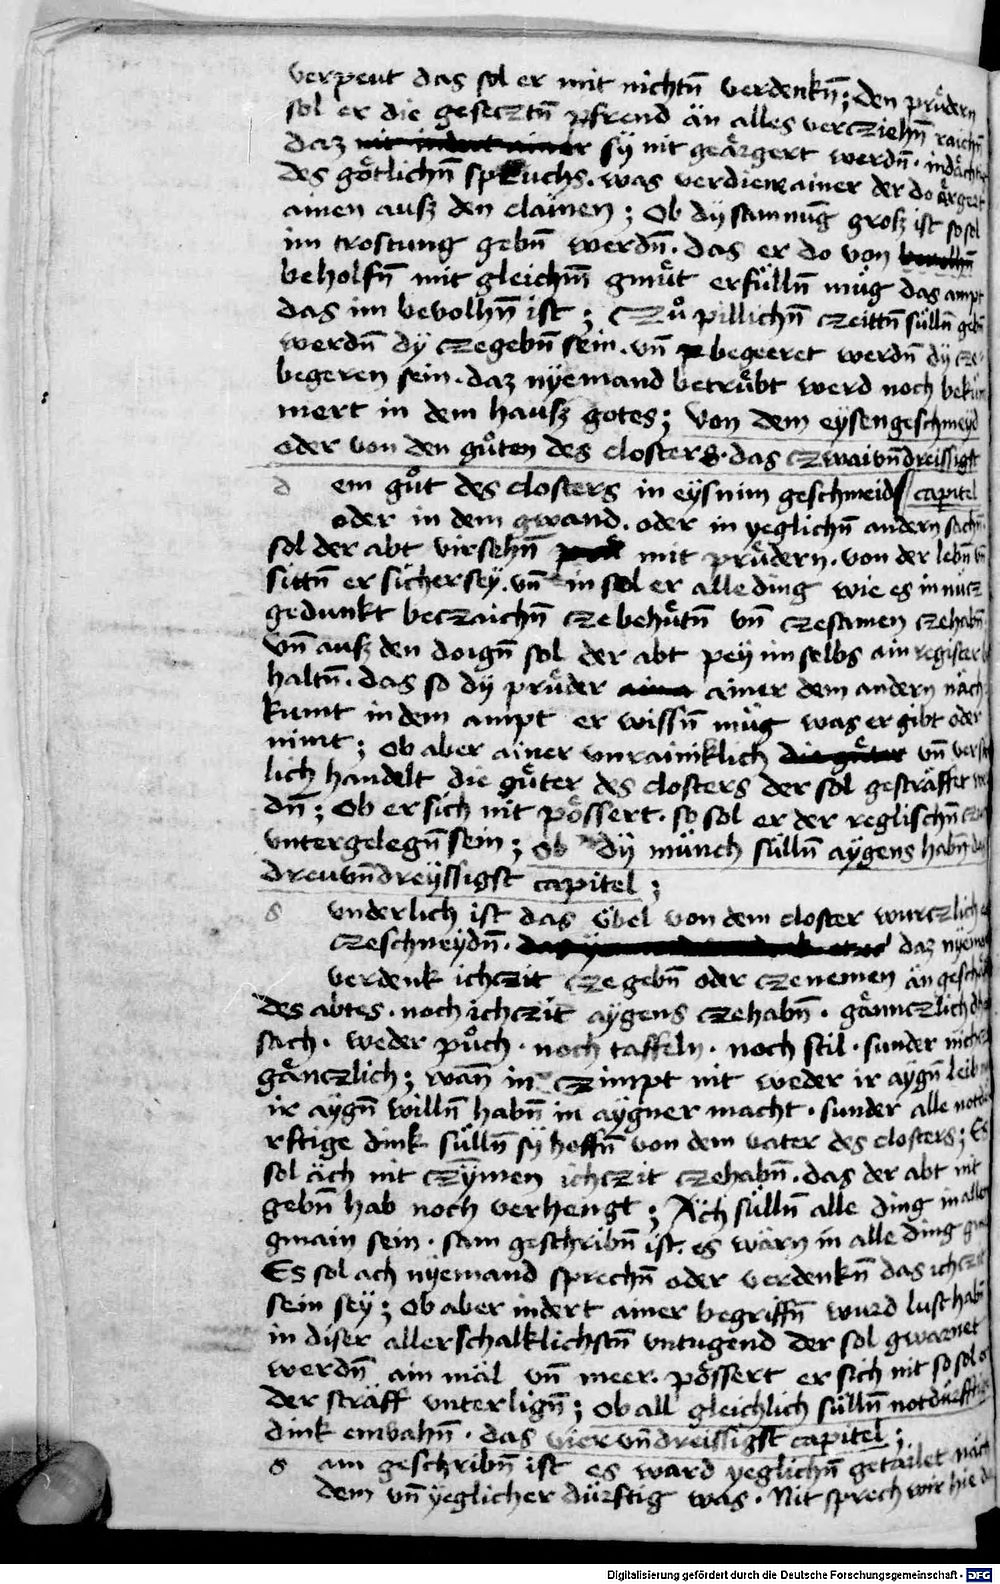 verpeut das sol er mit nichtn̄ verdenkn̄; den prüdern
sol er die gesecztn̄ pfrend än alles vercziehn̄ raichn̄
daz sÿ nit geärgert werdn̄. indächtig
des götlichn̄ spruchs. was verdiene ainer der do ärgert
ainen ausz den clainen; Ob dÿ samnūg grosz ist so sol
im trostung gebn̄ werdn̄. das er do von
beholfn̄ mit gleichm̄ gmüt erfülln̄ müg das ampt
das im bevolhn̄ ist; Czů pillichn̄ czeittn̄ sülln̄ gebn̄
werdn̄ dÿ czegebn̄ sein. vn̄ begeeret werdn̄ dÿ cze-
begeren sein. daz nÿemand betrübt werd noch bekü
mert in dem hausz gotes; Von dem eÿsengeschmeyd
oder von den gůten des closters. das czwaivn̄dreissigst
d em gůt des closters in eÿsnim geschmeid capitel
oder in dem gwand. oder in yeglichn̄ andern sachn̄
sol der abt virsehn̄ mit prüdern. von der lebn̄ vn̄
sittn̄ er sicher seÿ. vn̄ in sol er alle ding wie es in nücz
gedunkt beczaichn̄ czebehütn̄ vn̄ czesamen czehabn̄
vn̄ ausz den doign̄ sol der abt peÿ im selbs ain register
haltn̄. das so dÿ prüder ainer dem andern nach
kumt in dem ampt er wissn̄ müg was er gibt oder
nimt; Ob aber ainer vnrainiklich vn̄
lich handelt die güter des closters der sol gesträffet
dn̄; Ob er sich nit pössert. so sol er der reglischn̄
vntergelegn̄ sein; Ob dÿ münch sülln̄ aÿgens habn̄
dreuvn̄dreÿssigst capitel;
s vnderlich ist das übel von dem closter wurczlich
czeschneydn̄. daz nÿemand
verdenk ichczit czegebn̄ oder czenemen än
des abtes. noch ichczit aÿgens czehabn̄. gännczlich
sach. weder půch. noch taffeln. noch stil. sunder
gänczlich; wan̄ in czimpt nit weder ir aÿgn̄ leib
ir aÿgn̄ willn̄ habn̄ in aÿgner macht. sunder alle notdü
rftige dink sülln̄ sÿ hoffn̄ von dem vater des closters; Es
sol äch nit czÿmen ichczit czehabn̄. das der abt nit
gebn̄ hab noch verhengt; Äch sülln̄ alle ding in allen
gmain sein. sam geschribn̄ ist. es wärn in alle ding
Es sol ach nÿemand sprechn̄ oder verdenkn̄ das ichczit
sein seÿ; Ob aber indert ainer begriffn̄ wurd lust habn̄
in diser allerschalklichstn̄ vntugend der sol gwarnet
werdn̄ ain mäl vn̄ meer. pössert er sich nit so sol
der sträff vnterlign̄; Ob all gleichlich sülln̄ notdürfftige
dink empahn̄. das viervn̄dreissigst capitel;
s am geschribn̄ ist es ward yeglichn̄ getailet näch
dem vn̄ yeglicher dürftig was. Nit sprech wir hie
Digitalisierung gefördert durch die Deutsche Forschungsgemeinschaft - DFG